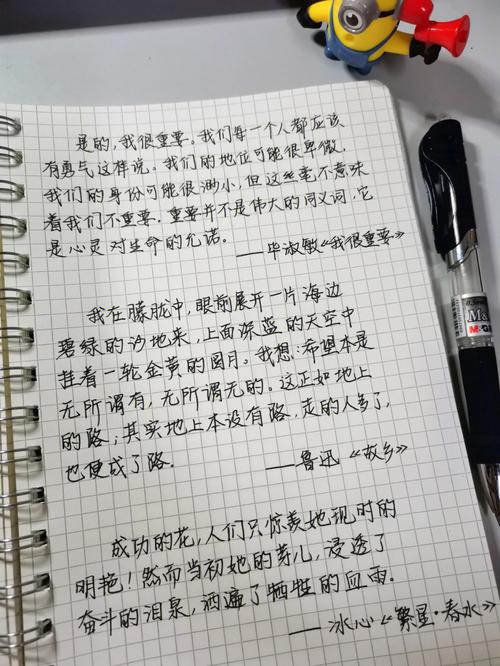 是的，我很重要。我们每一个人都应该
有勇气这样说。我们的地位可能很卑微，
我们的身份可能很渺小，但这丝毫不意味
着我们不重要。重要并不是伟大的同义词，它
是心灵对生命的允诺。
——毕淑敏《我很重要》
我在朦胧中，眼前展开一片海边
碧绿的沙地来，上面深蓝的天空中
挂着一轮金黄的圆月。我想：希望本是
无所谓有，无所谓无的。这正如地上
的路；其实地上本没有路，走的人多了，
也便成了路．
——鲁迅《故乡》
成功的花，人们只惊羡她现时的
明艳！然而当初她的芽儿，浸透了
奋斗的泪泉，洒遍了牺牲的血雨．
——冰心《繁星·春水》
M&G